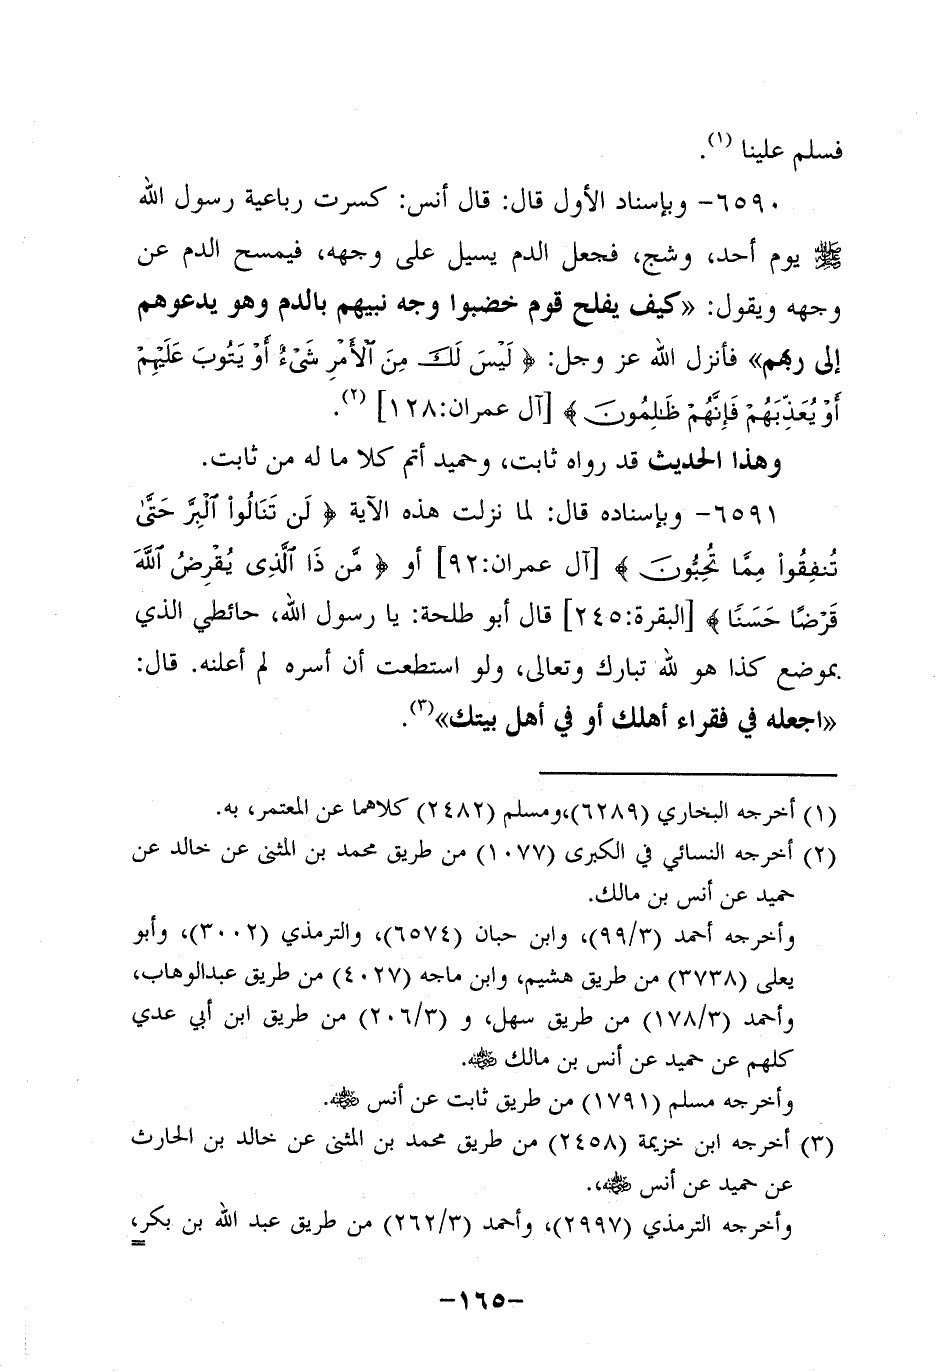 فسلم علينا (١).
٦٥٩٠- وبإسناد الأول قال: قال أنس: كسرت رباعية رسول الله
ﷺ يوم أحد، وشج، فجعل الدم يسيل على وجهه، فيمسح الدم عن
وجهه ويقول: «كيف يفلح قوم خضبوا وجه نبيهم بالدم وهو يدعوهم
إلى ربهم» فأنزل الله عز وجل: ﴿ لَيْسَ لَكَ مِنَ ٱلْأَمْرِ شَىْءٌ أَوْ يَتُوبَ عَلَيْهِمْ
أَوْ يُعَذِّبَهُمْ فَإِنَّهُمْ ظَـٰلِمُونَ ﴾ [آل عمران:١٢٨] (٢).
وهذا الحديث قد رواه ثابت، وحميد أتم كلا ما له من ثابت.
٦٥٩١- وبإسناده قال: لما نزلت هذه الآية ﴿ لَن تَنَالُوا۟ ٱلْبِرَّ حَتَّىٰ
تُنفِقُوا۟ مِمَّا تُحِبُّونَ ﴾ [آل عمران:٩٢] أو ﴿ مَّن ذَا ٱلَّذِى يُقْرِضُ ٱللَّهَ
قَرْضًا حَسَنًا ﴾ [البقرة:٢٤٥] قال أبو طلحة: يا رسول الله، حائطي الذي
بموضع كذا هو لله تبارك وتعالى، ولو استطعت أن أسره لم أعلنه. قال:
«اجعله في فقراء أهلك أو في أهل بيتك»(٣).
(١) أخرجه البخاري (٦٢٨٩)،ومسلم (٢٤٨٢) كلاهما عن المعتمر، به.
(٢) أخرجه النسائي في الكبرى (١٠٧٧) من طريق محمد بن المثنى عن خالد عن
حميد عن أنس بن مالك.
وأخرجه أحمد (٩٩/٣)، وابن حبان (٦٥٧٤)، والترمذي (٣٠٠٢)، وأبو
يعلى (٣٧٣٨) من طريق هشيم، وابن ماجه (٤٠٢٧) من طريق عبدالوهاب،
وأحمد (١٧٨/٣) من طريق سهل، و (٢٠٦/٣) من طريق ابن أبي عدي
كلهم عن حميد عن أنس بن مالك رضي الله عنه.
وأخرجه مسلم (١٧٩١) من طريق ثابت عن أنس رضي الله عنه.
(٣) أخرجه ابن خزيمة (٢٤٥٨) من طريق محمد بن المثنى عن خالد بن الحارث
عن حميد عن أنس رضي الله عنه،.
وأخرجه الترمذي (٢٩٩٧)، وأحمد (٢٦٢/٣) من طريق عبد الله بن بكر،
=
-١٦٥-